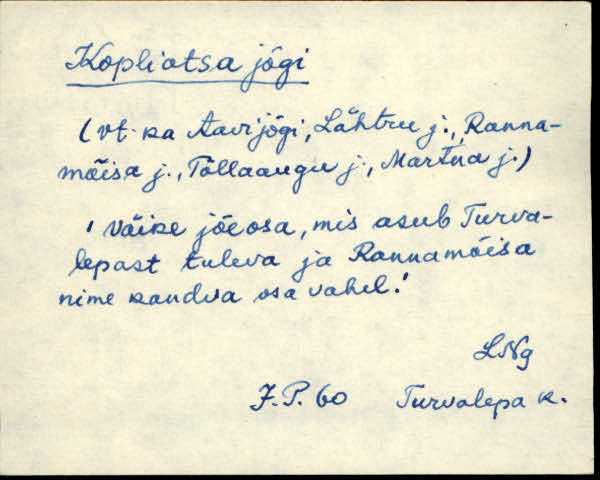 Kopliotsa jõgi
(vt. ka Aavijõgi, Lähtru j., Ranna-
mõisa j., Tõllaaugu j., Martna j.)
'Väike jõeosa, mis asub Turva-
lepast tuleva ja Rannamõisa
nime kandva osa vahel.'
LNg
J.P. 60 Turvalepa k.